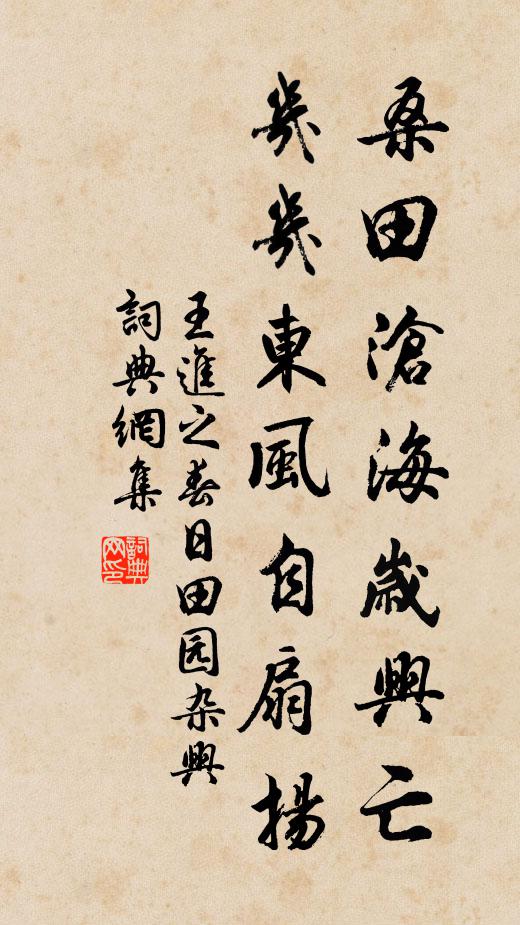 桑田滄海歲興亡
幾幾東風自扇揚
王進之春日田园杂興
詞典網集
詞典网印